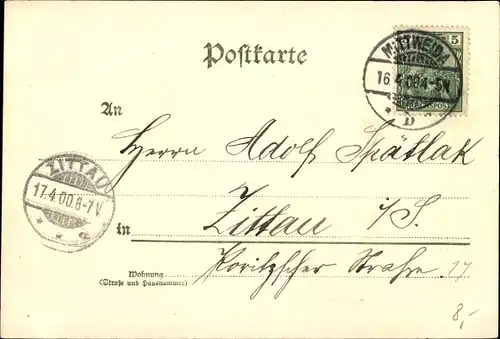 Postkarte
5
MITTWEIDA
16.4.00.4-5N.
* D *
An
Herrn Adolf Spätlak
ZITTAU
17.4.00.6-7V
* * c
in Zittau i/S.
Wohnung
(Straße und Hausnummer)
Straße 17
8,-